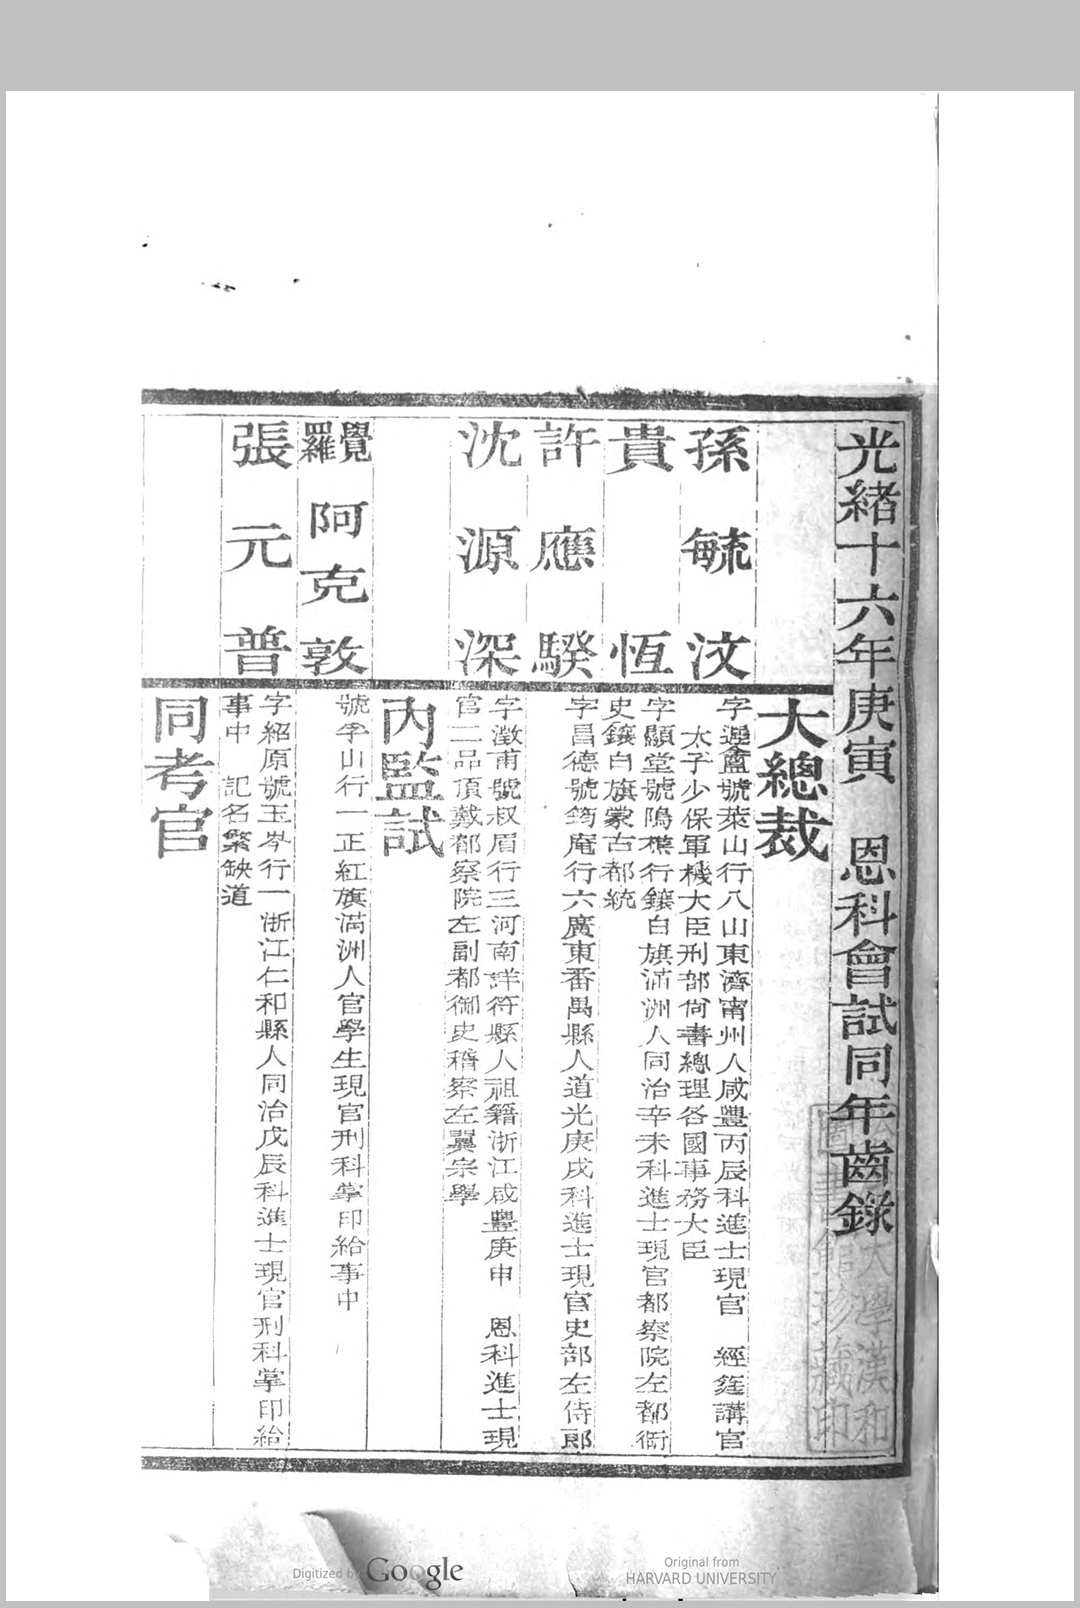 光緒十六年庚寅　恩科會試同年齒錄
大總裁
孫毓汶
字遲盦號萊山行八山東濟甯州人咸豐丙辰科進士現官　經筵講官
太子少保軍機大臣刑部尙書總理各國事務大臣
貴恆
字顯堂號隖樵行鑲白旗滿洲人同治辛未科進士現官都察院左都御
史鑲白旗蒙古都統
許應騤
字昌德號筠庵行六廣東番禺縣人道光庚戌科進士現官吏部左侍郎
沈源深
字澂甫號叔眉行三河南祥符縣人祖籍浙江咸豐庚申　恩科進士現
官二品頂戴都察院左副都御史稽察左翼宗學
內監試
覺羅阿克敦
號季山行一正紅旗滿洲人官學生現官刑科掌印給事中
張元普
字紹原號玉岑行一浙江仁和縣人同治戊辰科進士現官刑科掌印給
事中　記名繁缺道
同考官
大學漢和
圖書館珍藏印
Digitized by Google
Original from
HARVARD UNIVERSITY